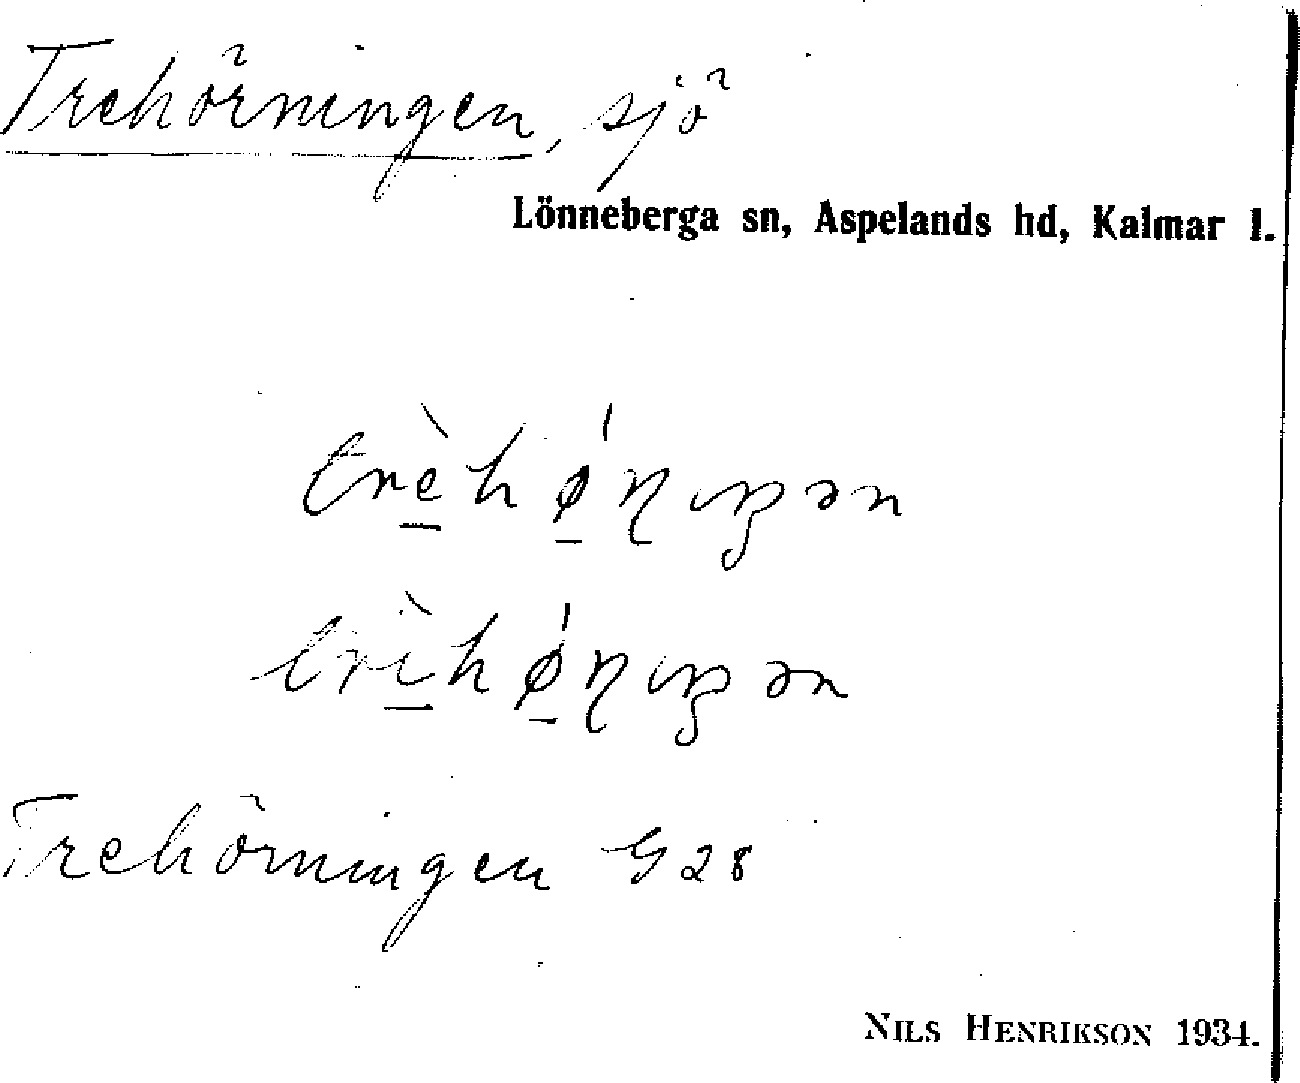 Trehörningen, sjö
Lönneberga sn, Aspelands hd, Kalmar l.
trè̱hǿ̱ɳıŋən
trì̱hǿ̱ɳıŋən
Trehörningen G 28
NILS HENRIKSON 1934.